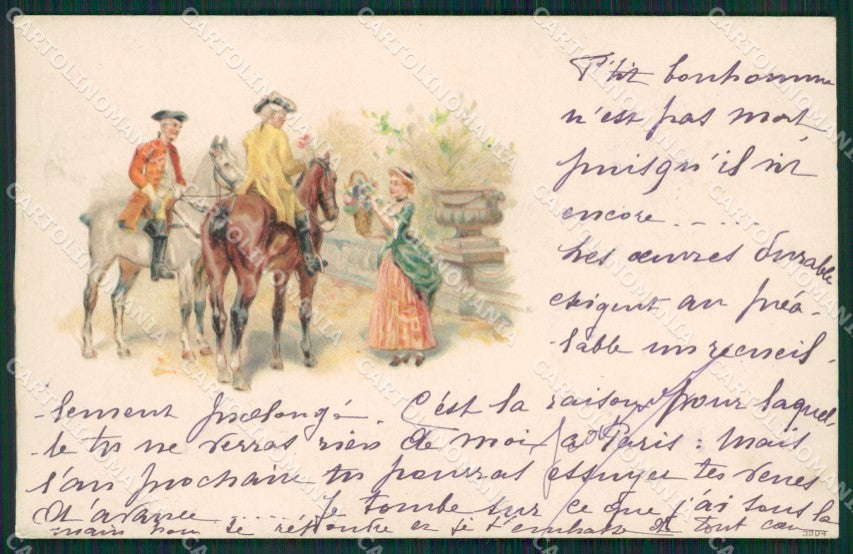 P'tit bonhomme
n'est pas mort
puisqu'il vit
encore.....
Les œuvres durable
exigent au préa-
-lable un recueil-
-lement prolongé. C'est la raison pour laquel-
le tu ne verras rien de moi à Paris: Mais
l'an prochain tu pourras essuyer tes
d'avance..... Je tombe sur ce que j'ai sous la
main pour te répondre et je t'embrasse de tout cœur
3304
CARTOLINOMANIA